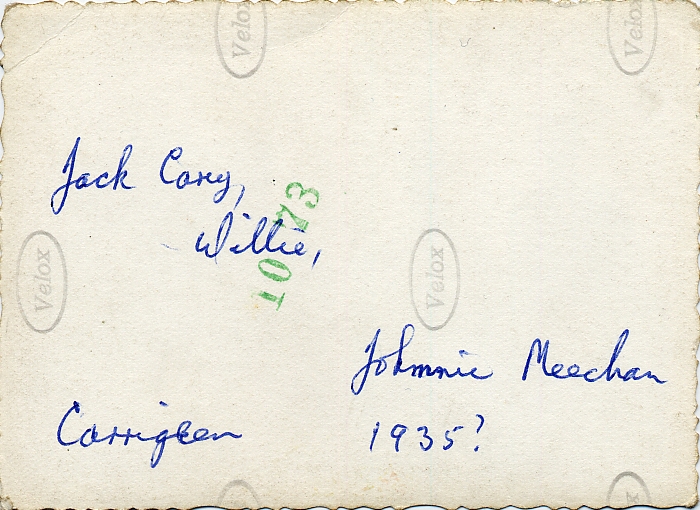 Velox
Velox
Jack Cory,
Willie,
1073
Velox
Velox
Johnnie Meechan
Corrigeen
1935?